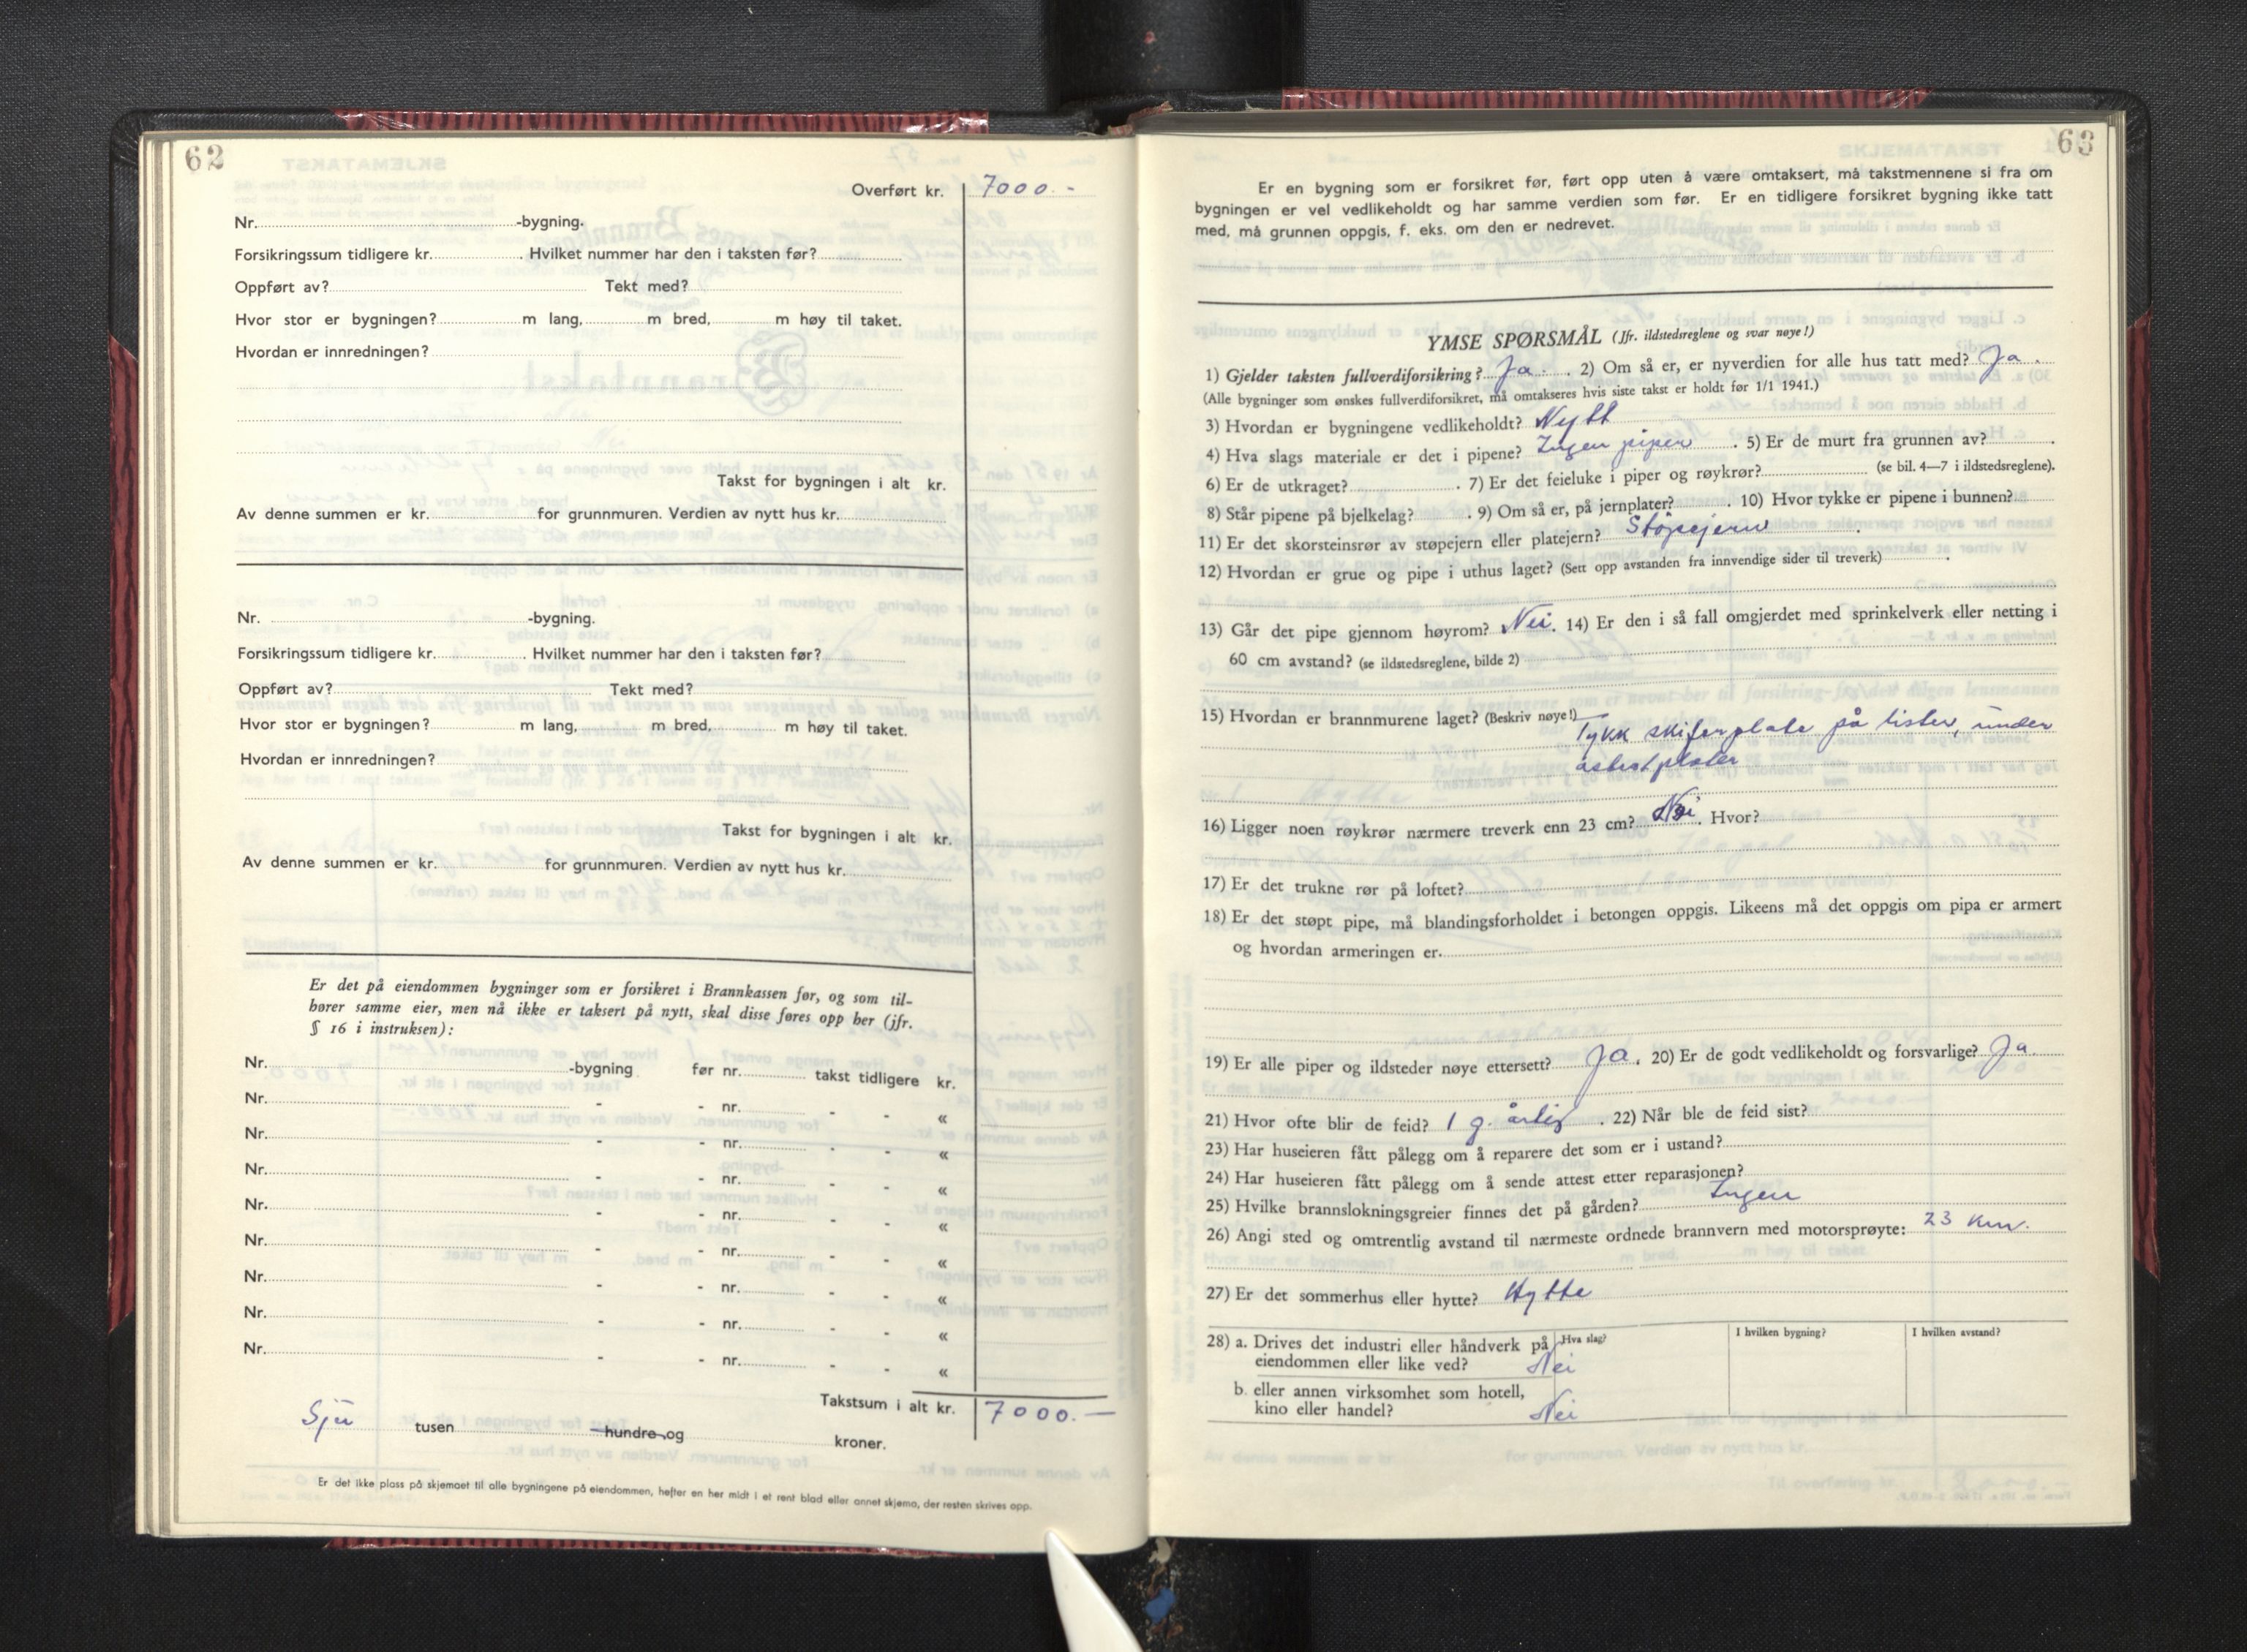 62
Overført kr. 7000.-
Nr. -bygning.
Forsikringssum tidligere kr. . Hvilket nummer har den i taksten før?
Oppført av? Tekt med?
Hvor stor er bygningen? m lang, m bred, m høy til taket.
Hvordan er innredningen?
Takst for bygningen i alt kr.
Av denne summen er kr. for grunnmuren. Verdien av nytt hus kr.
Nr. -bygning.
Forsikringssum tidligere kr. . Hvilket nummer har den i taksten før?
Oppført av? Tekt med?
Hvor stor er bygningen? m lang, m bred, m høy til taket.
Hvordan er innredningen?
Takst for bygningen i alt kr.
Av denne summen er kr. for grunnmuren. Verdien av nytt hus kr.
Er det på eiendommen bygninger som er forsikret i Brannkassen før, og som til-
hører samme eier, men nå ikke er taksert på nytt, skal disse føres opp her (jfr.
§ 16 i instruksen):
Nr. -bygning før nr. takst tidligere kr.
Nr. - - nr. - - «
Nr. - - nr. - - «
Nr. - - nr. - - «
Nr. - - nr. - - «
Nr. - - nr. - - «
Nr. - - nr. - - «
Nr. - - nr. - - «
Nr. - - nr. - - «
Takstsum i alt kr. 7000.—
Sju tusen hundre og kroner.
Er det ikke plass på skjemaet til alle bygningene på eiendommen, hefter en her midt i et rent blad eller annet skjema, der resten skrives opp.
63
Er en bygning som er forsikret før, ført opp uten å være omtaksert, må takstmennene si fra om
bygningen er vel vedlikeholdt og har samme verdien som før. Er en tidligere forsikret bygning ikke tatt
med, må grunnen oppgis, f. eks. om den er nedrevet.
YMSE SPØRSMÅL (Jfr. ildstedsreglene og svar nøye!)
1) Gjelder taksten fullverdiforsikring? Ja . 2) Om så er, er nyverdien for alle hus tatt med? Ja .
(Alle bygninger som ønskes fullverdiforsikret, må omtakseres hvis siste takst er holdt før 1/1 1941.)
3) Hvordan er bygningene vedlikeholdt? Nytt
4) Hva slags materiale er det i pipene? Ingen piper . 5) Er de murt fra grunnen av? .
6) Er de utkraget? . 7) Er det feieluke i piper og røykrør? (se bil. 4—7 i ildstedsreglene).
8) Står pipene på bjelkelag? . 9) Om så er, på jernplater? . 10) Hvor tykke er pipene i bunnen?
11) Er det skorsteinsrør av støpejern eller platejern? Støpejern .
12) Hvordan er grue og pipe i uthus laget? (Sett opp avstanden fra innvendige sider til treverk) .
13) Går det pipe gjennom høyrom? Nei. 14) Er den i så fall omgjerdet med sprinkelverk eller netting i
60 cm avstand? (se ildstedsreglene, bilde 2)
15) Hvordan er brannmurene laget? (Beskriv nøye!)
Tykk skiferplate på lister, under
asbestplater
16) Ligger noen røykrør nærmere treverk enn 23 cm? Nei . Hvor?
17) Er det trukne rør på loftet?
18) Er det støpt pipe, må blandingsforholdet i betongen oppgis. Likeens må det oppgis om pipa er armert
og hvordan armeringen er.
19) Er alle piper og ildsteder nøye ettersett? Ja . 20) Er de godt vedlikeholdt og forsvarlige? Ja
21) Hvor ofte blir de feid? 1 g. årlig . 22) Når ble de feid sist?
23) Har huseieren fått pålegg om å reparere det som er i ustand?
24) Har huseieren fått pålegg om å sende attest etter reparasjonen?
25) Hvilke brannslokningsgreier finnes det på gården? Ingen
26) Angi sted og omtrentlig avstand til nærmeste ordnede brannvern med motorsprøyte: 23 km.
27) Er det sommerhus eller hytte? Hytte
28) a. Drives det industri eller håndverk på Hva slag? I hvilken bygning? I hvilken avstand?
eiendommen eller like ved? Nei
b. eller annen virksomhet som hotell,
kino eller handel? Nei